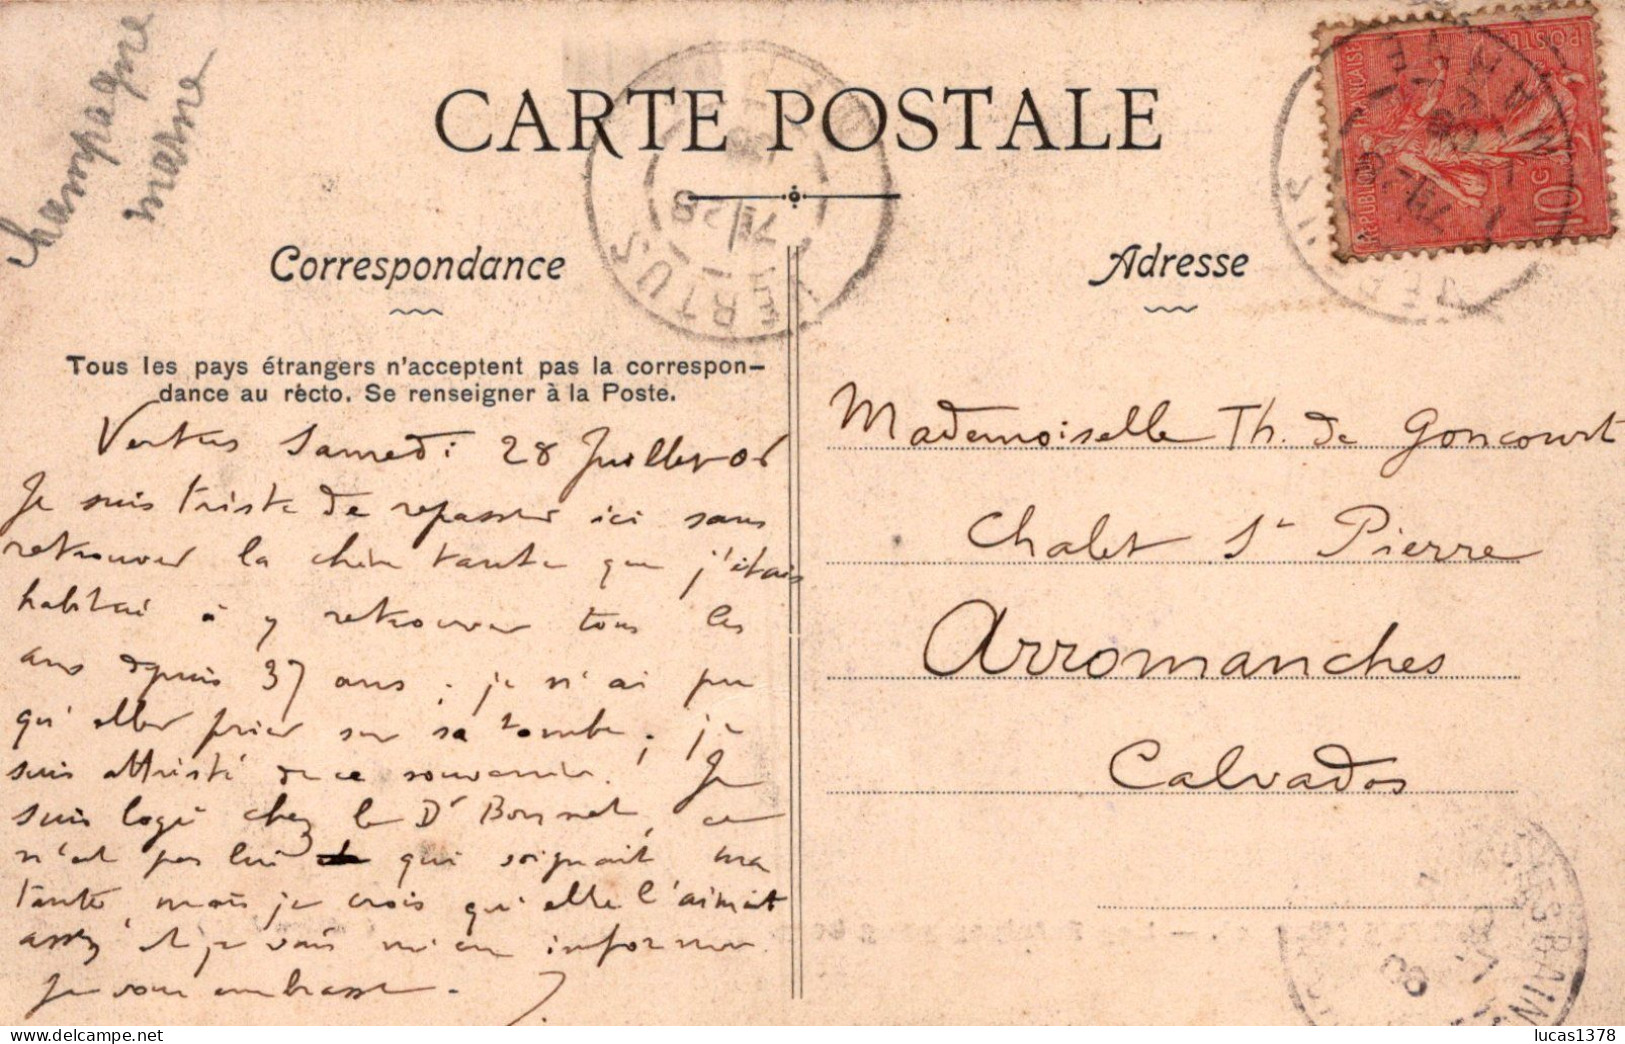 Champagne
marne
CARTE POSTALE
VERTUS
7 28
Correspondance
Adresse
RÉPUBLIQUE FRANÇAISE
POSTES
10
MARNE
Tous les pays étrangers n'acceptent pas la correspon-
dance au recto. Se renseigner à la Poste.
Vertus Samedi 28 Juillet 06
Je suis triste de repasser ici sans
retrouver la chère tante que j'étais
habitué à y retrouver tous les
ans depuis 37 ans ; je n'ai pu
qu'aller prier sur sa tombe ; je
suis attristé de ce souvenir. Je
suis logé chez le Dr Bonnet, ce
n'est pas lui qui soignait ma
tante, mais je crois qu'elle l'aimait
assez et je vais m'en informer
Je vous embrasse.
Mademoiselle Th. de Goncourt
Chalet St Pierre
Arromanches
Calvados
LES BAINS
lucas1378